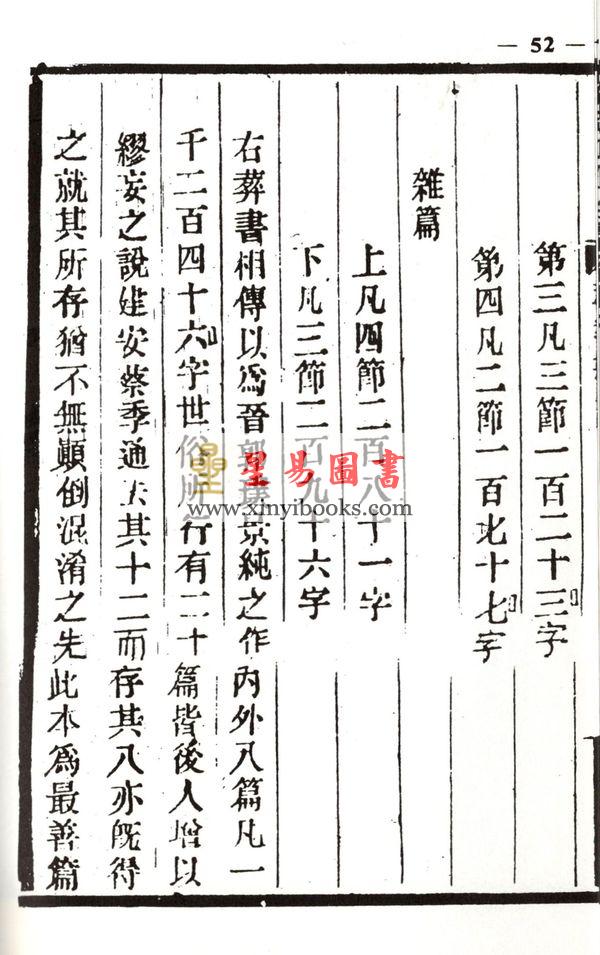 — 52 —
第三凡三節一百二十三字
第四凡二節一百九十七字
雜篇
上凡四節二百八十一字
下凡三節二百九十六字
右葬書相傳以為晉郭璞景純之作內外八篇凡一
千二百四十六字世俗所行有二十篇皆後人增以
繆妄之說建安蔡季通去其十二而存其八亦既得
之就其所存猶不無顛倒混淆之先此本為最善篇
星易圖書
www.xinyibooks.com